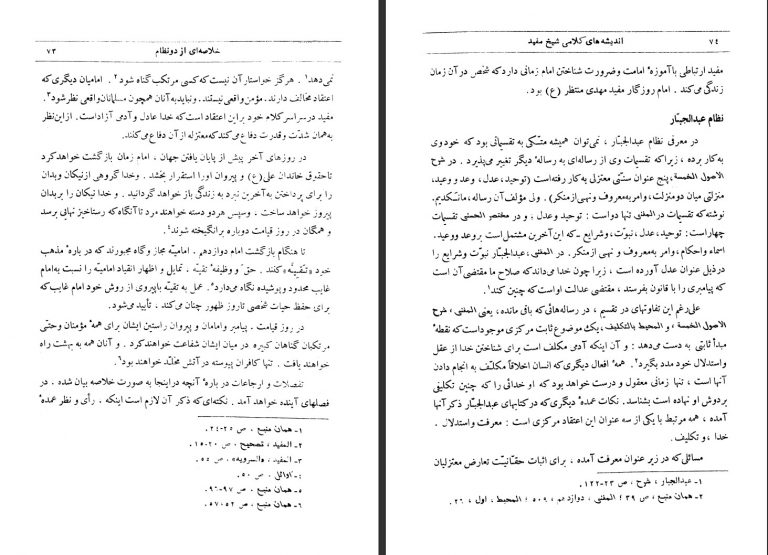 خلاصه‌ای از دو نظام ۷۳
نمی‌دهد۱. هرگز خواستار آن نیست که کسی مرتکب گناه شود۲. امامیان دیگری که
اعتقاد مخالف دارند. مؤمن واقعی نیستند. و نباید به آنان همچون مسلمانان واقعی نظر شود۳.
مفید در سراسر کلام خود بر این اعتقاد است که خدا عادل و آدمی آزاد است. از این نظر
به همان شدّت و قدرت دفاع می‌کند که معتزله از آن دفاع می‌کنند.
در روزهای آخر پیش از پایان یافتن جهان ، امام زمان بازگشت خواهد کرد
تا حقوق خاندان علی (ع) و پیروان او را استقرار بخشد . و خدا گروهی از نیکان و بدان
را برای پرداختن به آخرین نبرد به زندگی باز خواهد گردانید . و خدا نیکان را بر بدان
پیروز خواهد ساخت . و سپس هر دو دسته خواهند مرد تا آنگاه که رستاخیز نهائی برسد
و همگان در روز قیامت دوباره برانگیخته شوند۴.
تا هنگام بازگشت امام دوازدهم . امامیّه مجاز و گاه مجبورند که در بارهٔ مذهب
خود «تقیّه» کنند . حق و وظیفهٔ تقیّه . تمایل و اظهار انقیاد امامیّه را نسبت به امام
غایب محدود و پوشیده نگاه می‌دارد۵. عمل به تقیّه با پیروی از روش خود امام غایب که
برای حفظ حیات شخصی تا روز ظهور چنان می‌کند ، تأیید می‌شود.
در روز قیامت . پیامبر و امامان و پیروان راستین ایشان برای همهٔ مؤمنان و حتّی
مرتکبان گناهان کبیره در میان ایشان شفاعت خواهند کرد . و آنان همه به بهشت راه
خواهند یافت . تنها کافران پیوسته در آتش مخلّد خواهند بود۶.
تفصلات و ارجاعات در بارهٔ آنچه در اینجا به صورت خلاصه بیان شده . در
فصلهای آینده خواهد آمد . نکته‌ای که ذکر آن لازم است اینکه . رأی و نظر عمدهٔ
۱ـ همان منبع ، ص ۲۵-۲۴.
۲ـ المفید ، تصحیح ، ص ۲۰-۱۵.
۳ـ المفید ، «السرویه» ، ص ۵۵.
۴ـ اوائل ، ص ۵۰.
۵ـ همان منبع ، ص ۹۷-۹۶.
۶ـ همان منبع ، ص ۵۲-۵۷.
۷۴ اندیشه‌های کلامی شیخ مفید
مفید ارتباطی با آموزهٔ امامت و ضرورت شناختن امام زمانی دارد که شخص در آن زمان
زندگی می‌کند . امام روزگار مفید مهدی منتظر (ع) بود.
نظام عبدالجبّار
در معرفی نظام عبدالجبّار ، نمی‌توان همیشه متّکی به تقسیماتی بود که خود وی
به کار برده ، زیرا که تقسیمات وی از رساله‌ای به رسالهٔ دیگر تغییر می‌پذیرد . در شرح
الاصول الخمسة، پنج عنوان سنّتی معتزلی به کار رفته است (توحید، عدل، وعد و وعید،
منزلتی میان دو منزلت، وامر به معروف و نهی از منکر) . ولی مؤلف آن رساله، مانکدیم،
نوشته که تقسیمات در المغنی تنها دو است : توحید و عدل ، و در مختصر الحسنی تقسیمات
چهار است: توحید، عدل، نبوّت، و شرایع ـ که این آخرین مشتمل است بر وعد و وعید.
اسماء و احکام، وامر به معروف و نهی از منکر. در المغنی، عبدالجبّار نبوّت و شرایع را
در ذیل عنوان عدل آورده است ، زیرا چون خدا می‌داند که صلاح ما مقتضی آن است
که پیامبری را با قانون بفرستد ، مقتضی عدالت او است که چنین کند۱.
علی‌رغم این تفاوتهای در تقسیم ، در رساله‌هائی که باقی مانده ، یعنی المغنی ، شرح
الاصول الخمسة ، و المحیط بالتکلیف، یک موضوع ثابت مرکزی موجود است که نقطهٔ
مبدأ ثابتی به دست می‌دهد : و آن اینکه آدمی مکلف است برای شناختن خدا از عقل
و استدلال خود مدد بگیرد۲. همهٔ افعال دیگری که انسان اخلاقاً مکلّف به انجام دادن
آنها است ، تنها زمانی معقول و درست خواهد بود که او خدائی را که چنین تکلیفی
بر دوش او نهاده است بشناسد. نکات عمدهٔ دیگری که در کتابهای عبدالجبّار ذکر آنها
آمده ، همه مرتبط با یکی از سه عنوان این اعتقاد مرکزی است : معرفت و استدلال .
خدا ، و تکلیف.
مسائلی که در زیر عنوان معرفت آمده ، برای اثبات حقّانیّت تعارض معتزلیان
۱ـ عبدالجبار ، شرح ، ص ۲۳-۱۲۲.
۲ـ همان منبع ، ص ۳۹ ؛ المغنی ، دوازدهم ، ۵۰۹ ؛ المحیط ، اول ، ۲۶.